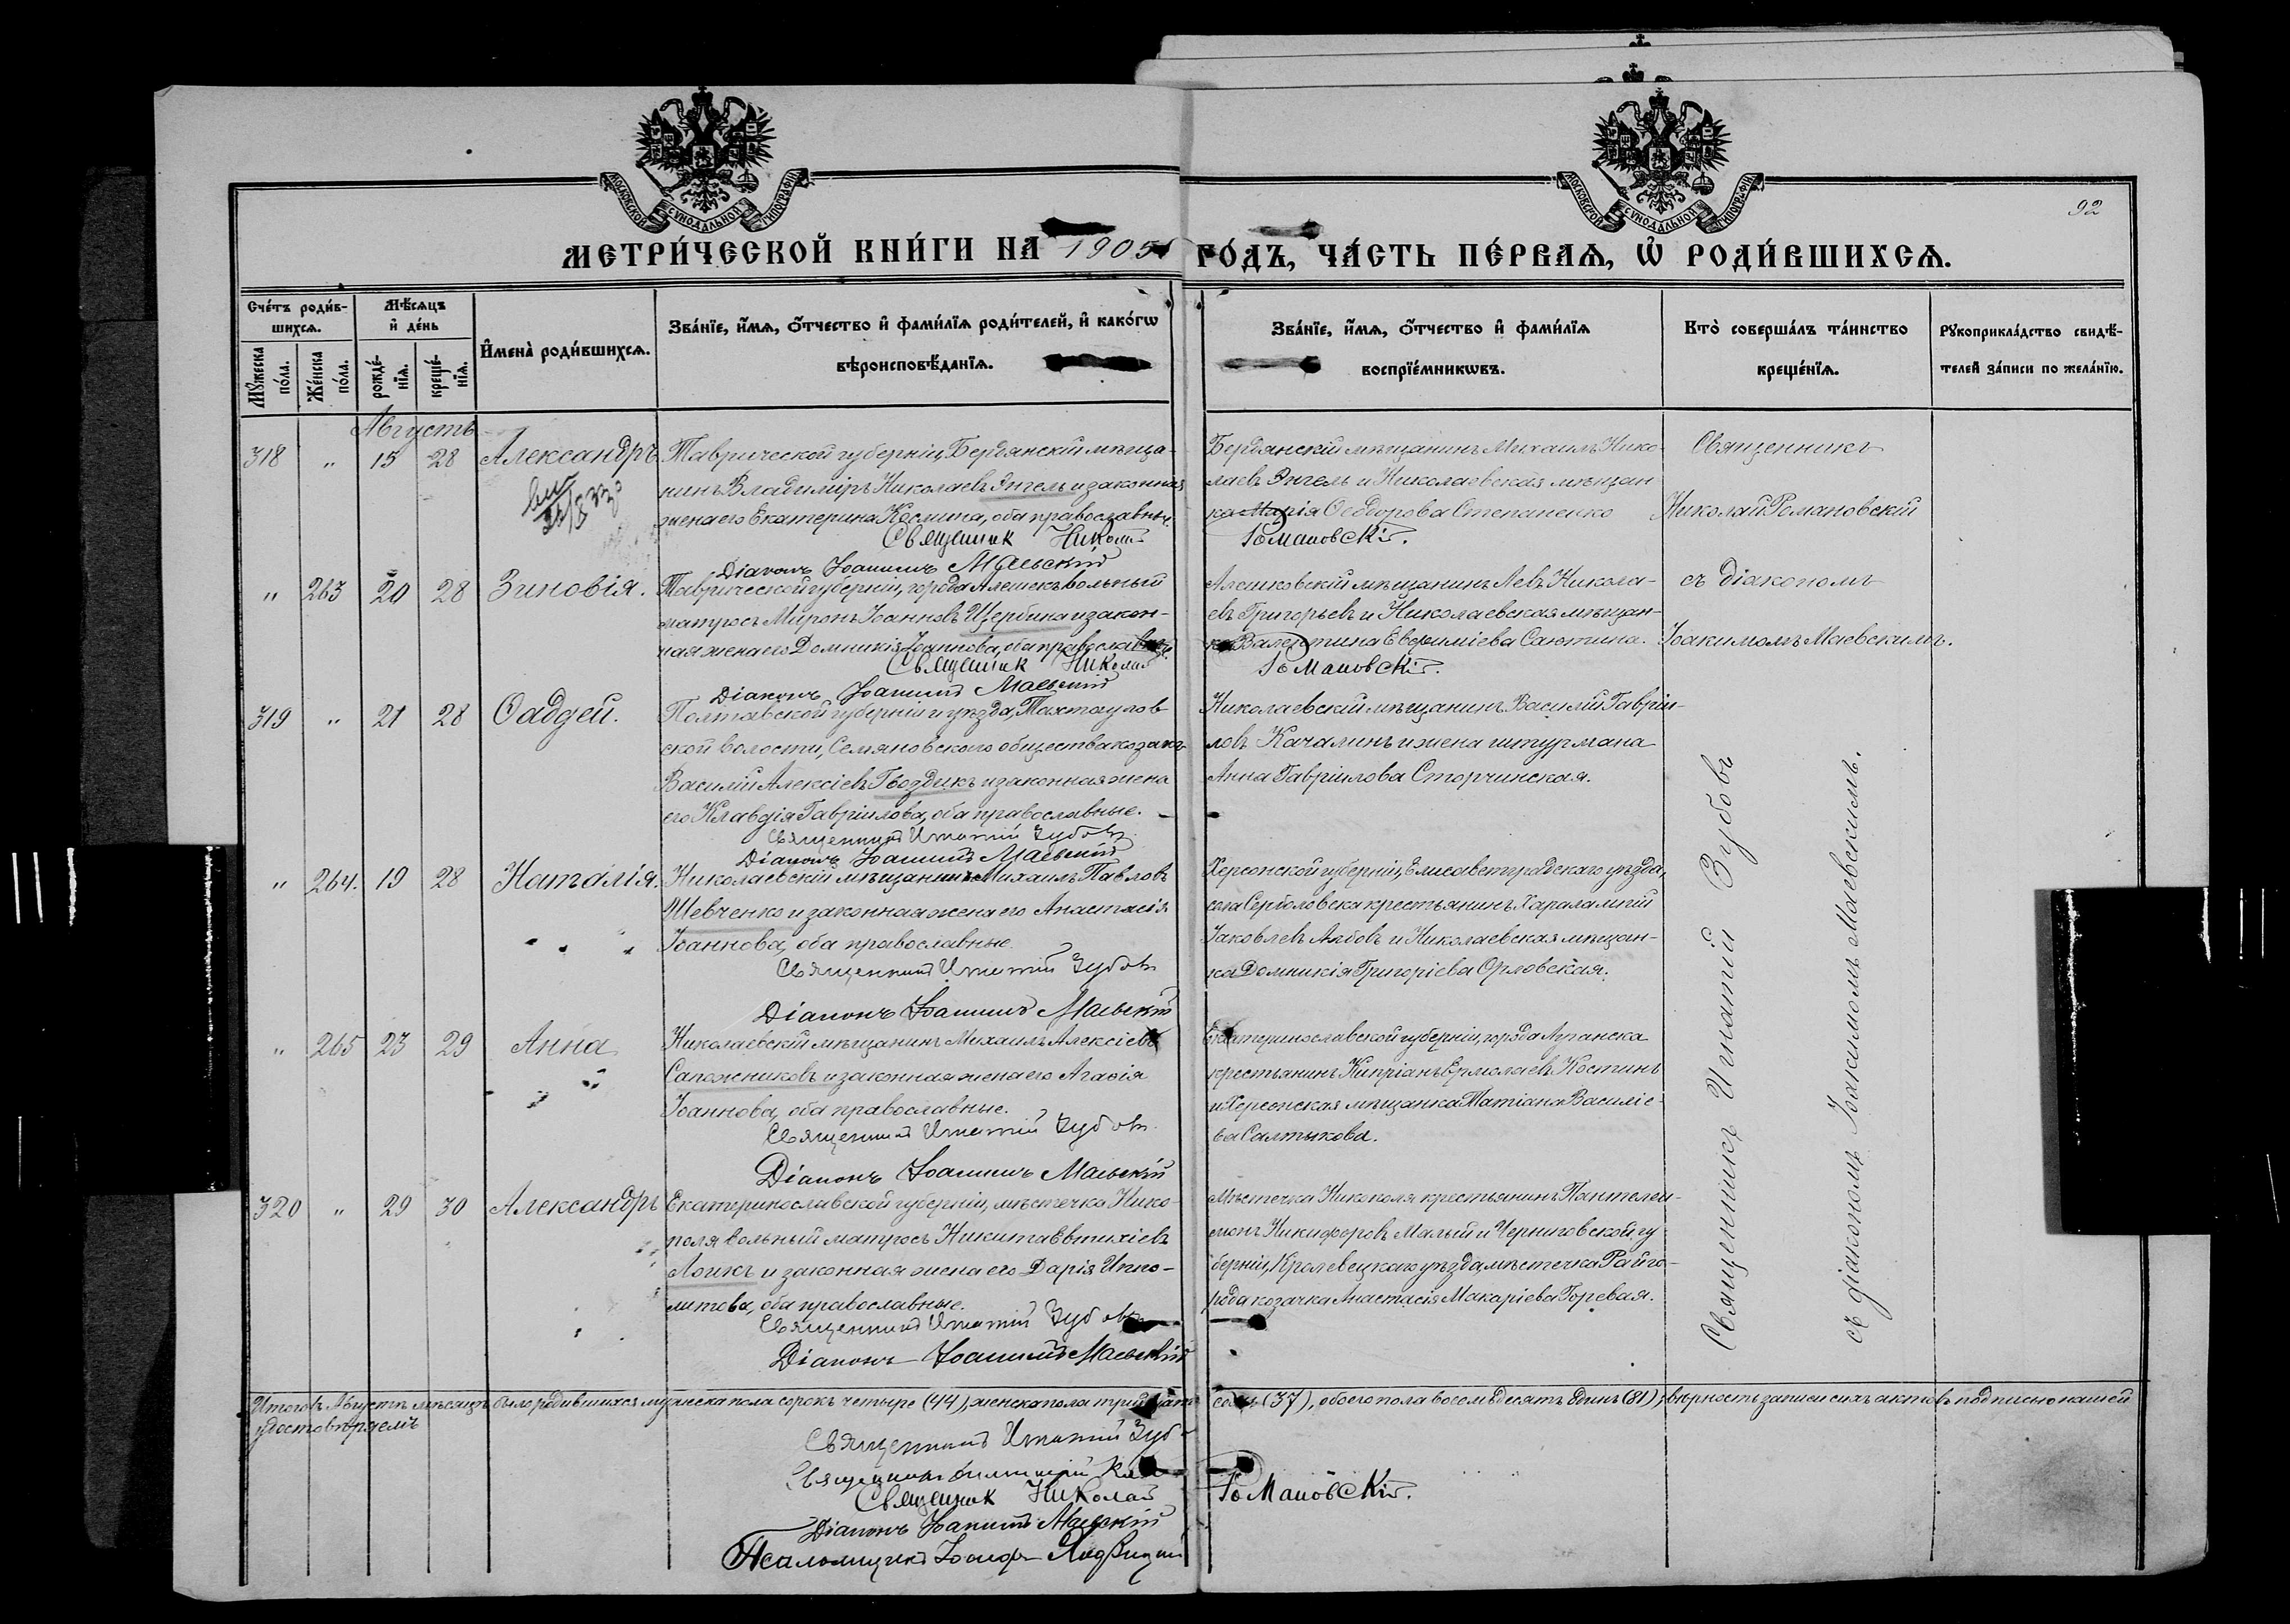 МОСКОВСКОЙ СѴНОДАЛЬНОЙ ТИПОГРАФІИ
МОСКОВСКОЙ СѴНОДАЛЬНОЙ ТИПОГРАФІИ
92
МЕТРИ́ЧЕСКОЙ КНИ́ГИ НА 1905 ГО́ДЪ, ЧА́СТЬ ПЕ́РВАѦ, Ѡ҆ РОДИ́ВШИХСѦ.
Сче́тъ роди́в-
шихсѧ.
Мѣ́сѧцъ
и҆ де́нь
И҆мена̀ роди́вшихсѧ.
Зва́нїе, и҆́мѧ, ѻ҆́тчество и҆ фами́лїѧ роди́телей, и҆ како́гѡ
вѣроисповѣ́данїѧ.
Зва́нїе, и҆́мѧ, ѻ҆́тчество и҆ фами́лїѧ
воспрїе́мникѡвъ.
Кто̀ соверша́лъ та́инство
креще́нїѧ.
Рꙋкоприкла́дство свидѣ́-
телей за́писи по жела́нїю.
Мꙋ́жеска
по́ла.
Же́нска
по́ла.
рожде́-
нїѧ.
креще́-
нїѧ.
Августъ
318 " 15 28 Александръ
Таврической губерніи, Бердянскій мѣща-
нинъ Владиміръ Николаевъ Энгель и законная
жена его Екатерина Космина, оба православные.
Священник Николай Романовскій.
Діаконъ Іоакимъ Маевскій
Бердянскій мѣщанинъ Михаилъ Нико-
лаевъ Энгель и Николаевская мѣщан
ка Марія Ѳеодорова Степаненко
Священникъ
Николай Романовскій
съ діакономъ
Іоакимомъ Маевскимъ.
" 263 20 28 Зиновія.
Таврической губерніи, города Алешекъ вольный
матросъ Миронъ Іоанновъ Щербина и закон-
ная жена его Домникія Іоаннова, оба православные
Священник Николай Романовскій.
Діаконъ Іоакимъ Маевскій
Алешковскій мѣщанинъ Левъ Никола-
евъ Григорьевъ и Николаевская мѣщан-
ка Валентина Евфиміева Саютина.
319 " 21 28 Ѳаддей.
Полтавской губерніи и уѣзда, Тахтаулов
ской волости, Семяновского общества козакъ
Василій Алексіевъ Гвоздикъ и законная жена
его Клавдія Гавріилова, оба православные.
Священникъ Игнатій Зубовъ
Діаконъ Іоакимъ Маевскій
Николаевскій мѣщанинъ Василій Гаврии-
ловъ Качалинъ и жена штурмана
Анна Гавріилова Сторчинская.
" 264. 19 28 Наталія.
Николаевскій мѣщанинъ Михаилъ Павловъ
Шевченко и законная жена его Анастасія
Іоаннова, оба православные.
Священникъ Игнатій Зубовъ
Діаконъ Іоакимъ Маевскій
Херсонской губерніи, Елисаветградскаго уѣзда,
села крестьянинъ Харалампій
Іаковлевъ и Николаевская мѣщан-
ка Домникія Григоріева Орловская.
" 265 23 29 Анна
Николаевскій мѣщанинъ Михаилъ Алексіевъ
Сапожниковъ и законная жена его Агаѳія
Іоаннова, оба православные.
Священникъ Игнатій Зубовъ
Діаконъ Іоакимъ Маевскій
Екатеринославской губерніи, города Луганска
крестьянинъ Кипріанъ Ермолаевъ Костинъ
и Херсонская мѣщанка Татіана Василіе-
ва Салтыкова.
320 " 29 30 Александръ
Екатеринославской губерніи, мѣстечка Нико-
поля вольный матросъ Никита Евтихіевъ
Лоикъ и законная жена его Дарія Иппо-
литова, оба православные.
Священникъ Игнатій Зубовъ
Діаконъ Іоакимъ Маевскій
Мѣстечка Никополя крестьянинъ Пантелеи-
монъ Никифоровъ Малый и Черниговской гу
берніи, Кролевецкаго уѣзда, мѣстечка Райго-
рода козачка Анастасія Макаріева Горевая.
Священникъ Игнатій Зубовъ
съ діакономъ Іоакимомъ Маевскимъ.
Итого въ Августѣ мѣсяцѣ было родившихся мужеска пола сорокъ четыре (44), женска пола тридцать семь (37), обоего пола восемьдесятъ одинъ (81), вѣрность записи сихъ актовъ подписью нашей
удостовѣряемъ
Священникъ Игнатій Зубо
Священникъ
Священник Николай Романовскій.
Діаконъ Іоакимъ Маевскій
Псаломщикъ Іосифъ